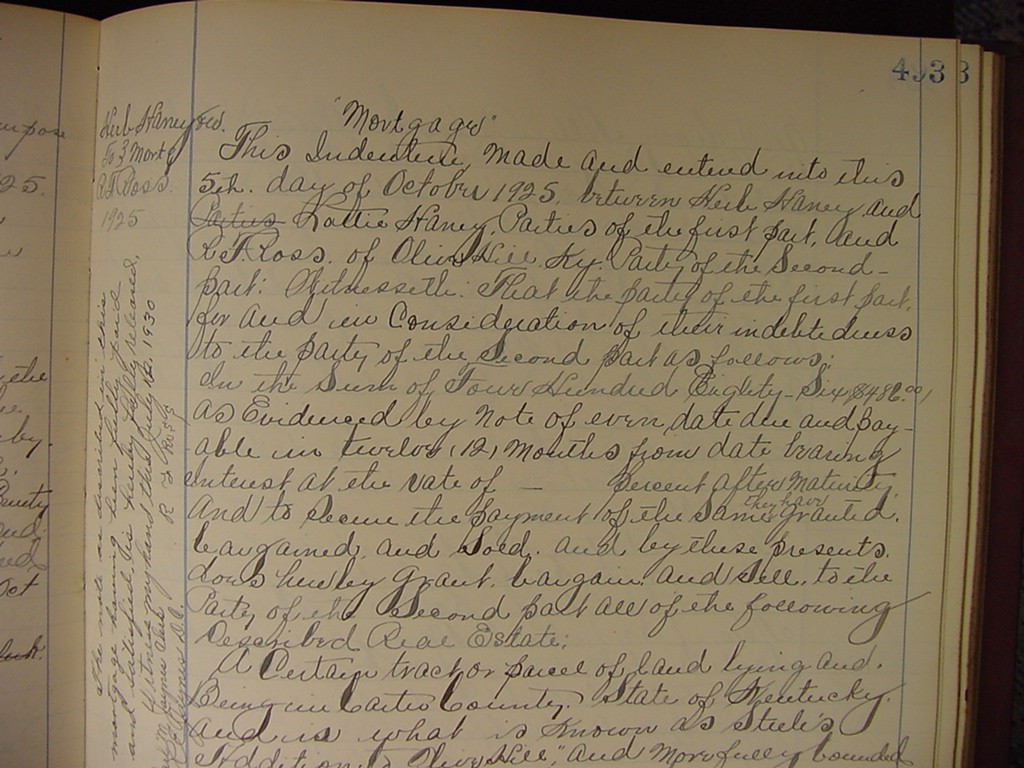 493
Herb Haney &c.
To } Mortg
R.T. Ross.
1925
"Mortgage"
This Indenture, Made and entered into this
5th. day of October 1925, between Herb Haney and
Parties Lottie Haney, Parties of the first part, and
R.T. Ross. of Olive Hill Ky. Party of the Second-
part: Witnesseth: That the party of the first part,
for and in Consideration of their indebtedness
to the party of the Second part as follows:
In the Sum of Four Hundred Eighty-Six $486.00/
as Evidenced by note of even date due and pay-
able in twelve (12) Months from date bearing
interest at the rate of — percent after Maturity.
they have
And to secure the payment of the same granted,
bargained, and Sold, and by these presents
does hereby Grant, bargain, and Sell, to the
Party of the Second part all of the following
Described Real Estate:
A Certain tract or parcel of land lying and
Being in Carter County, State of Kentucky.
and is what is Known as Steele's
addition to Olive Hill," and More fully bounded
The note as described in this
mortgage having been fully paid
and satisfied, is hereby fully released.
Witness my hand this July 12. 1930
R T Ross
Clerk
D.C.
urpose
25.
the
by.
County
and
Oct